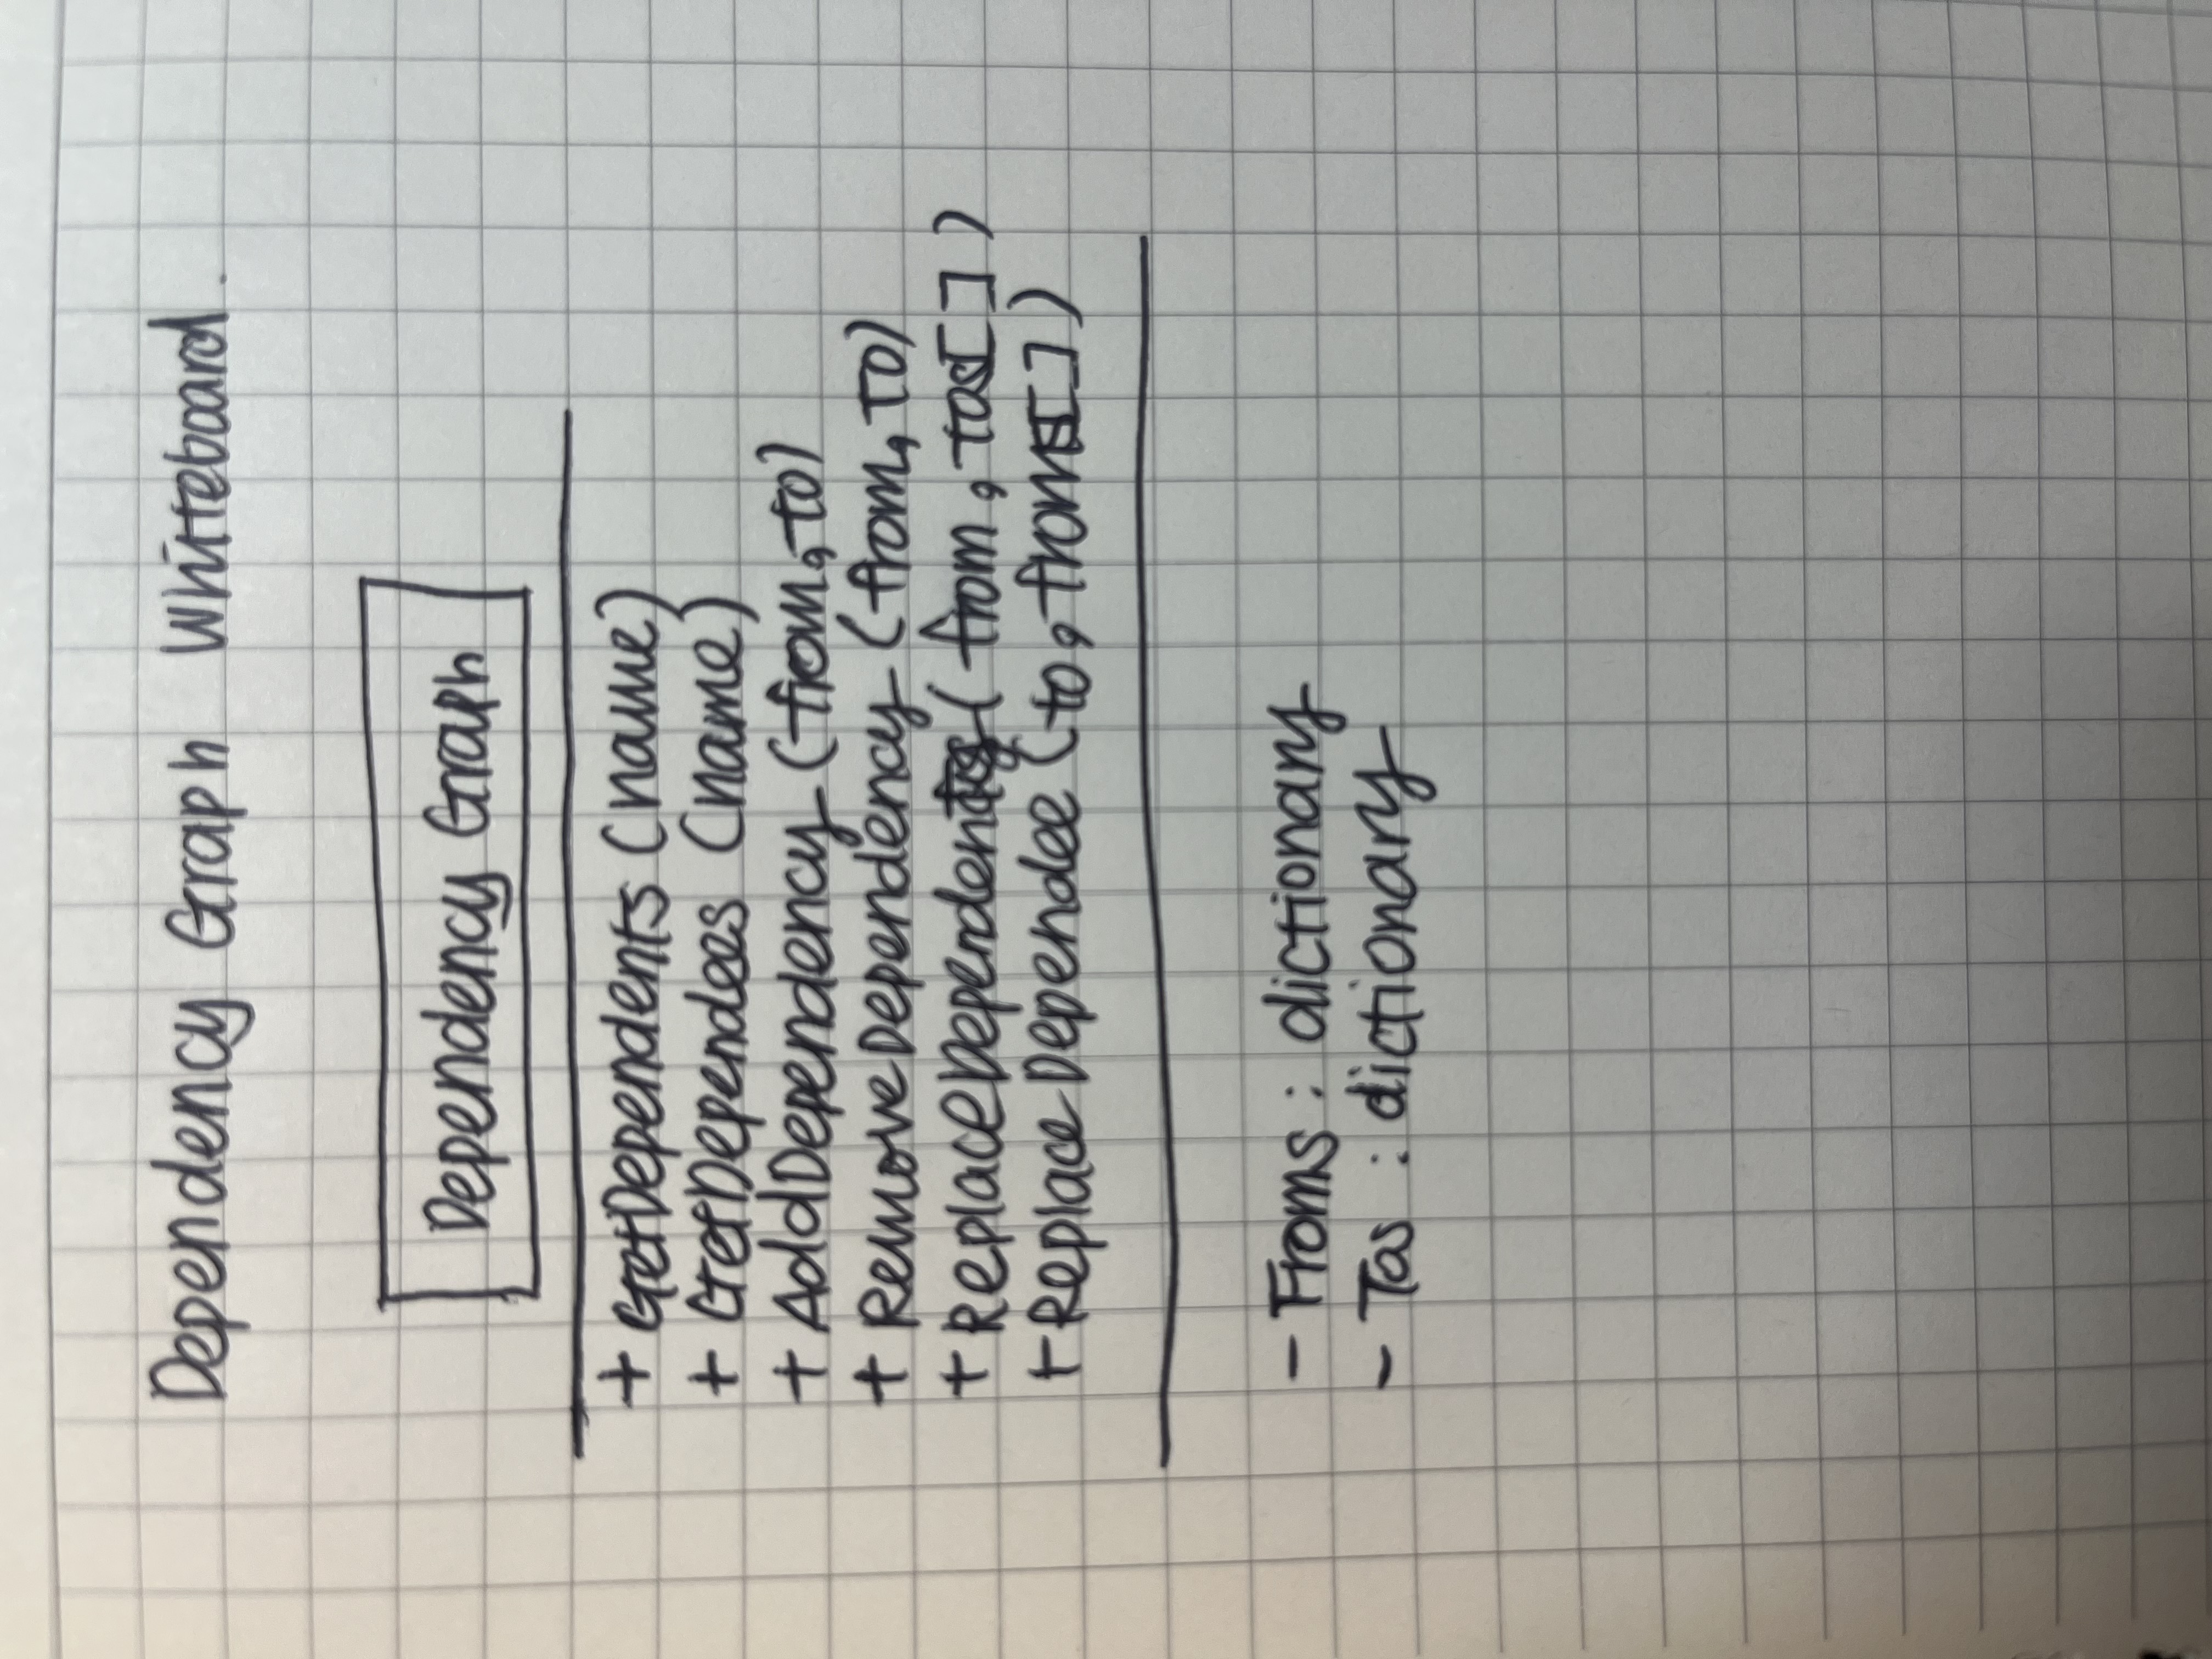 Dependency Graph Whiteboard.
Dependency Graph
+ GetDependents (name)
+ GetDependees (name)
+ AddDependency (from, to)
+ RemoveDependency (from, to)
+ ReplaceDependents (from, tos[])
+ ReplaceDependee (to, froms[])
- Froms : dictionary
- Tos : dictionary